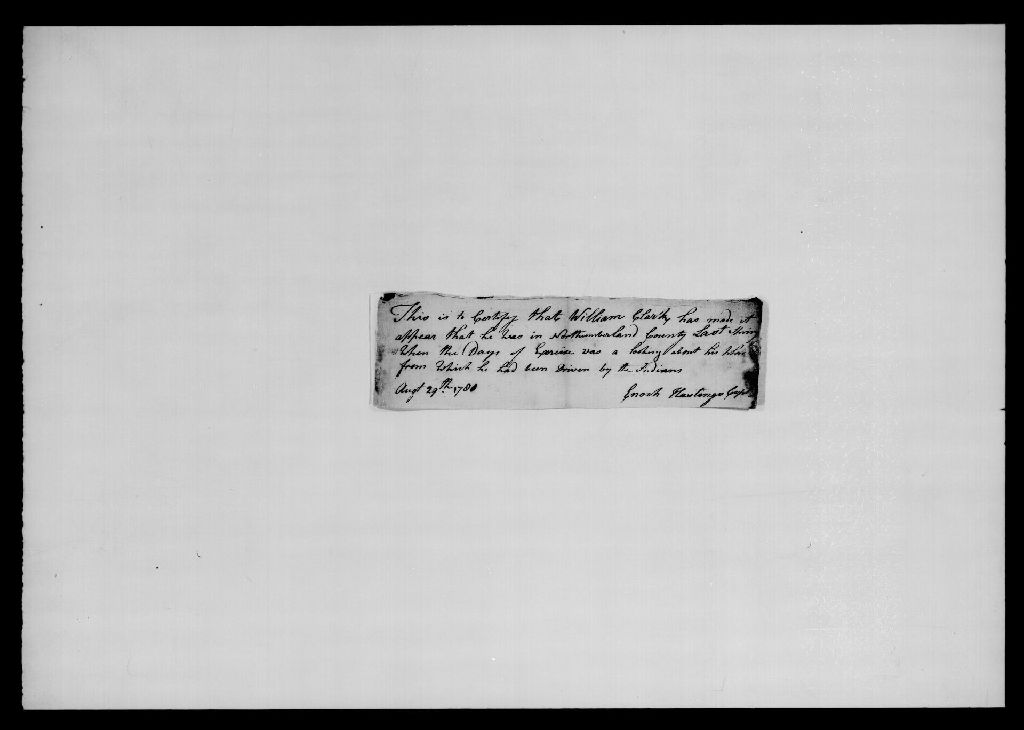 This is to Certify that William Clark has made it
appear that he was in Northumberland County Last
When the Days of Exercise was a looking about his
from Which he had been Driven by the Indians
Augt 29th 1780
Enoch Hastings Capt